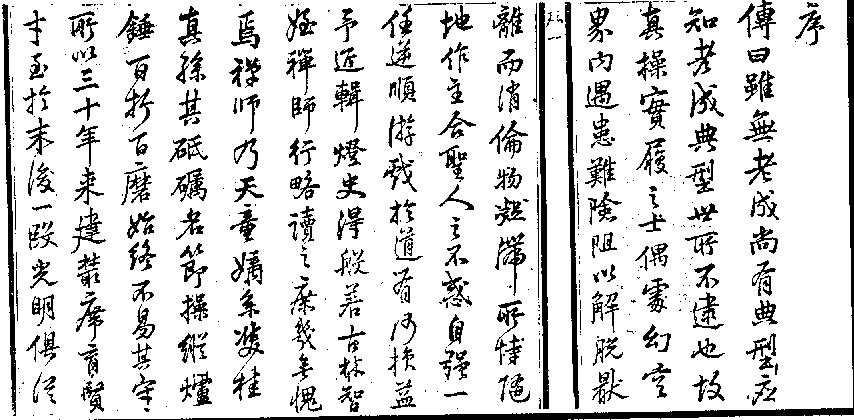 序
傳曰雖無老成尚有典型应
知老成典型世所不逮也故
真操實履之士偶處幻空
界內遇患難險阻以解脫厭
離而消倫物凝滯所恃隨
地作主合聖人之不惑自强一
任逆順游戲於道有何損益
予近輯燈史得般若古林智
姪禪師行略讀之庶幾無愧
焉禪師乃天童嫡系雙桂
真孫其砥礪名節操縱爐
錘百折百磨始終不易其守
所以三十年来建叢席育賢
才至於末後一段光明俱從